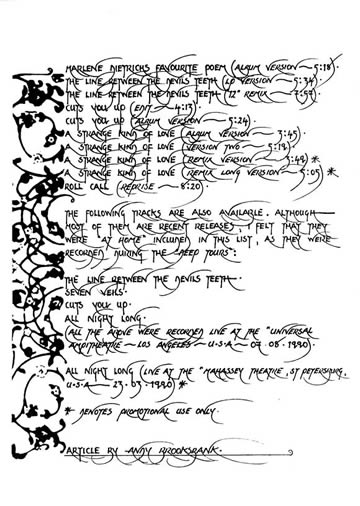 MARLENE DIETRICHS FAVOURITE POEM (ALBUM VERSION — 5:18).
THE LINE BETWEEN THE DEVILS TEETH (LP VERSION — 5:34).
THE LINE BETWEEN THE DEVILS TEETH (12" REMIX — 7:57).
CUTS YOU UP (EDIT — 4:13).
CUTS YOU UP (ALBUM VERSION — 5:24).
A STRANGE KIND OF LOVE (ALBUM VERSION — 3:45).
A STRANGE KIND OF LOVE (VERSION TWO — 5:19).
A STRANGE KIND OF LOVE (REMIX VERSION — 3:48) *
A STRANGE KIND OF LOVE (REMIX LONG VERSION — 5:05) *
ROLL CALL (REPRISE — 8:20).
THE FOLLOWING TRACKS ARE ALSO AVAILABLE, ALTHOUGH
MOST OF THEM ARE RECENT RELEASES, I FELT THAT THEY
WERE "AT HOME" INCLUDED IN THIS LIST, AS THEY WERE
RECORDED DURING THE "DEEP TOURS":
THE LINE BETWEEN THE DEVILS TEETH.
SEVEN VEILS.
CUTS YOU UP.
ALL NIGHT LONG.
(ALL THE ABOVE WERE RECORDED LIVE AT THE "UNIVERSAL
AMPITHEATRE — LOS ANGELES — U·S·A — 07·08·1990).
ALL NIGHT LONG (LIVE AT THE "MAHASSEY THEATRE, ST PETERSBURG,
U·S·A — 23·03·1990) *
* DENOTES PROMOTIONAL USE ONLY.
ARTICLE BY ANDY BROOKSBANK.